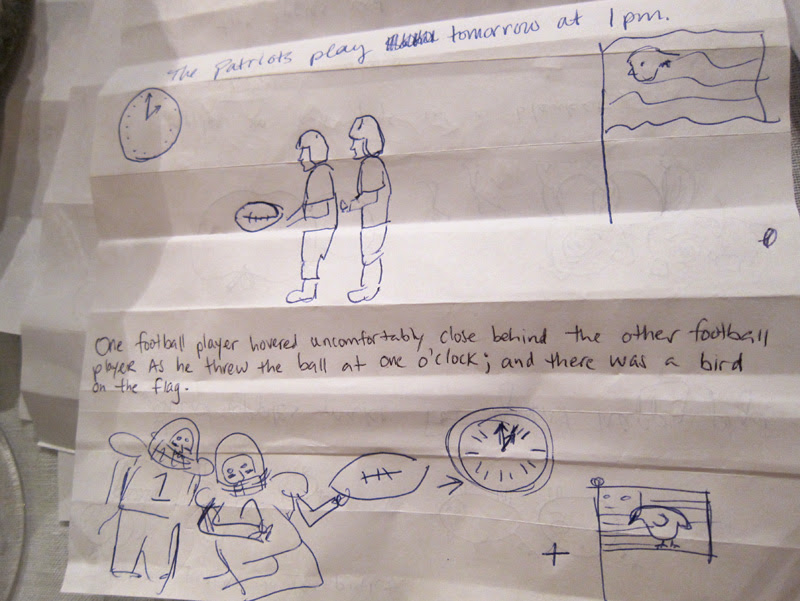 The Patriots play tomorrow at 1pm.
One football player hovered uncomfortably close behind the other football
player As he threw the ball at one o'clock; and there was a bird
on the flag.
1
+